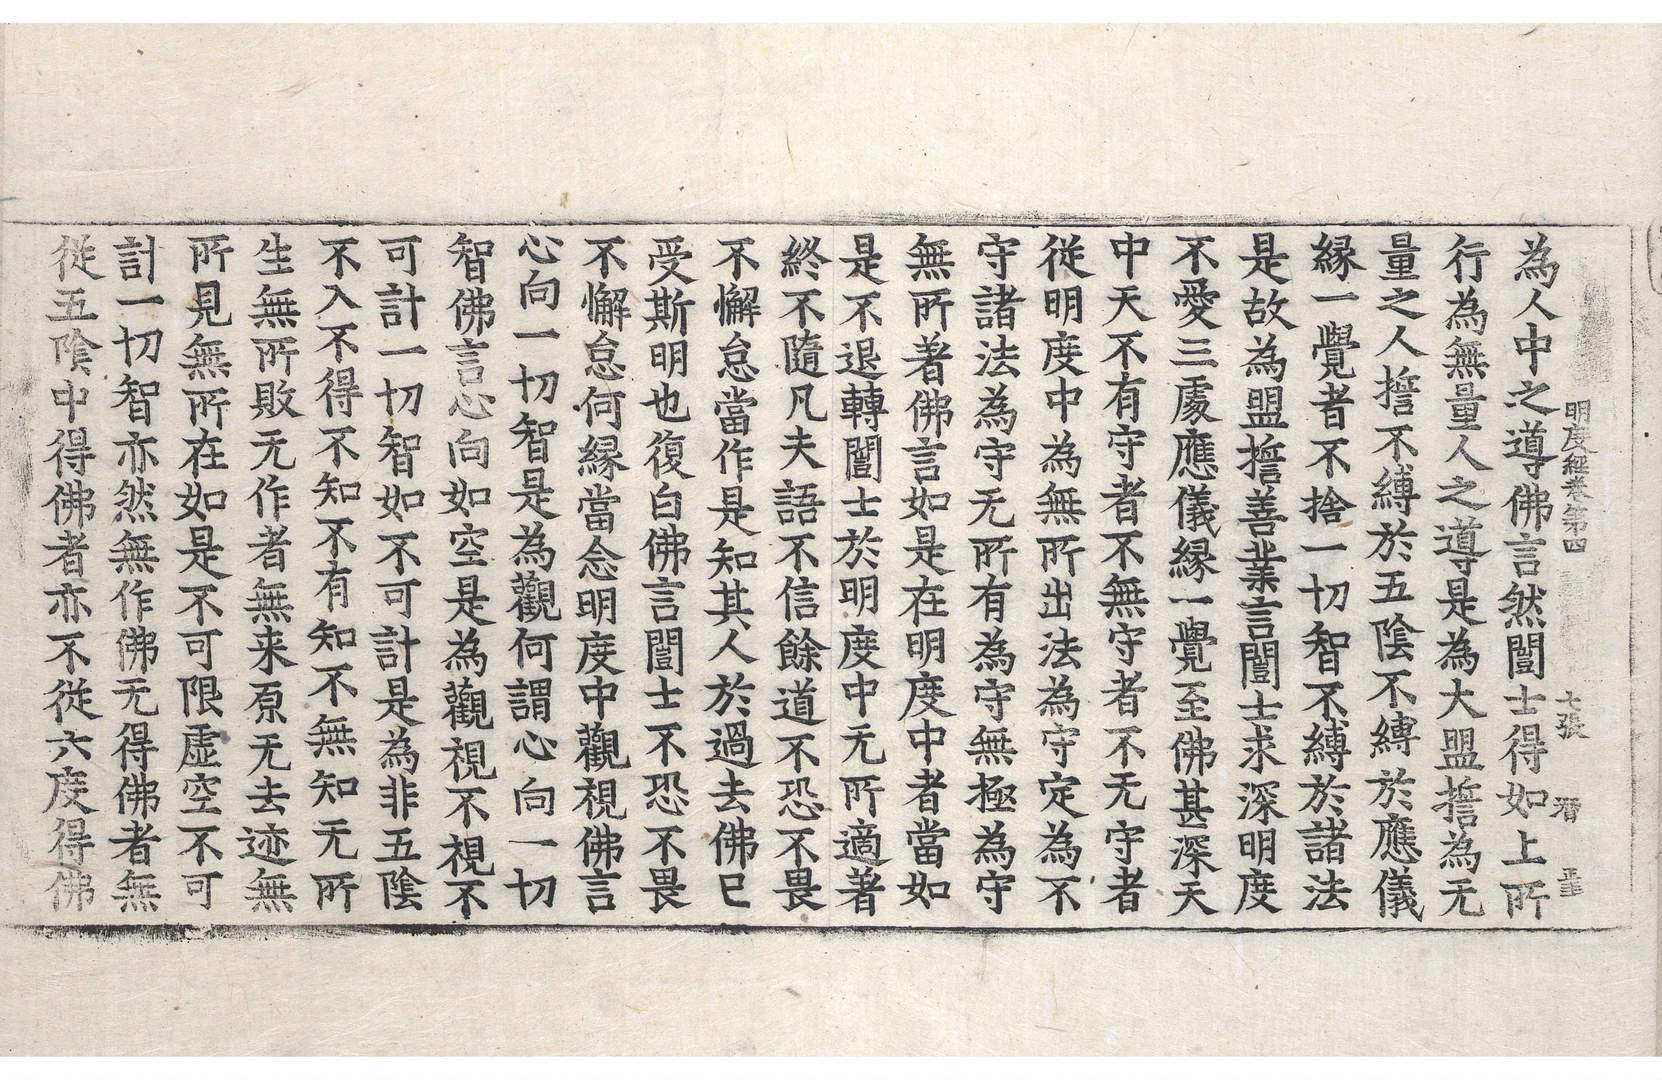 明度經卷第四 七張 潛
為人中之導佛言然闓士得如上所
行為無量人之導是為大盟誓為无
量之人擔不縛於五陰不縛於應儀
縁一覺者不捨一切智不縛於諸法
是故為盟誓善業言闓士求深明度
不愛三處應儀縁一覺至佛甚深天
中天不有守者不無守者不无守者
從明度中為無所出法為守定為不
守諸法為守无所有為守無極為守
無所著佛言如是在明度中者當如
是不退轉闓士於明度中无所適著
終不隨凡夫語不信餘道不恐不畏
不懈怠當作是知其人於過去佛已
受斯明也復白佛言闓士不恐不畏
不懈怠何縁當念明度中觀視佛言
心向一切智是為觀何謂心向一切
智佛言心向如空是為觀視不視不
可計一切智如不可計是為非五陰
不入不得不知不有知不無知无所
生無所敗无作者無来原无去迹無
所見無所在如是不可限虛空不可
計一切智亦然無作佛无得佛者無
從五陰中得佛者亦不從六度得佛